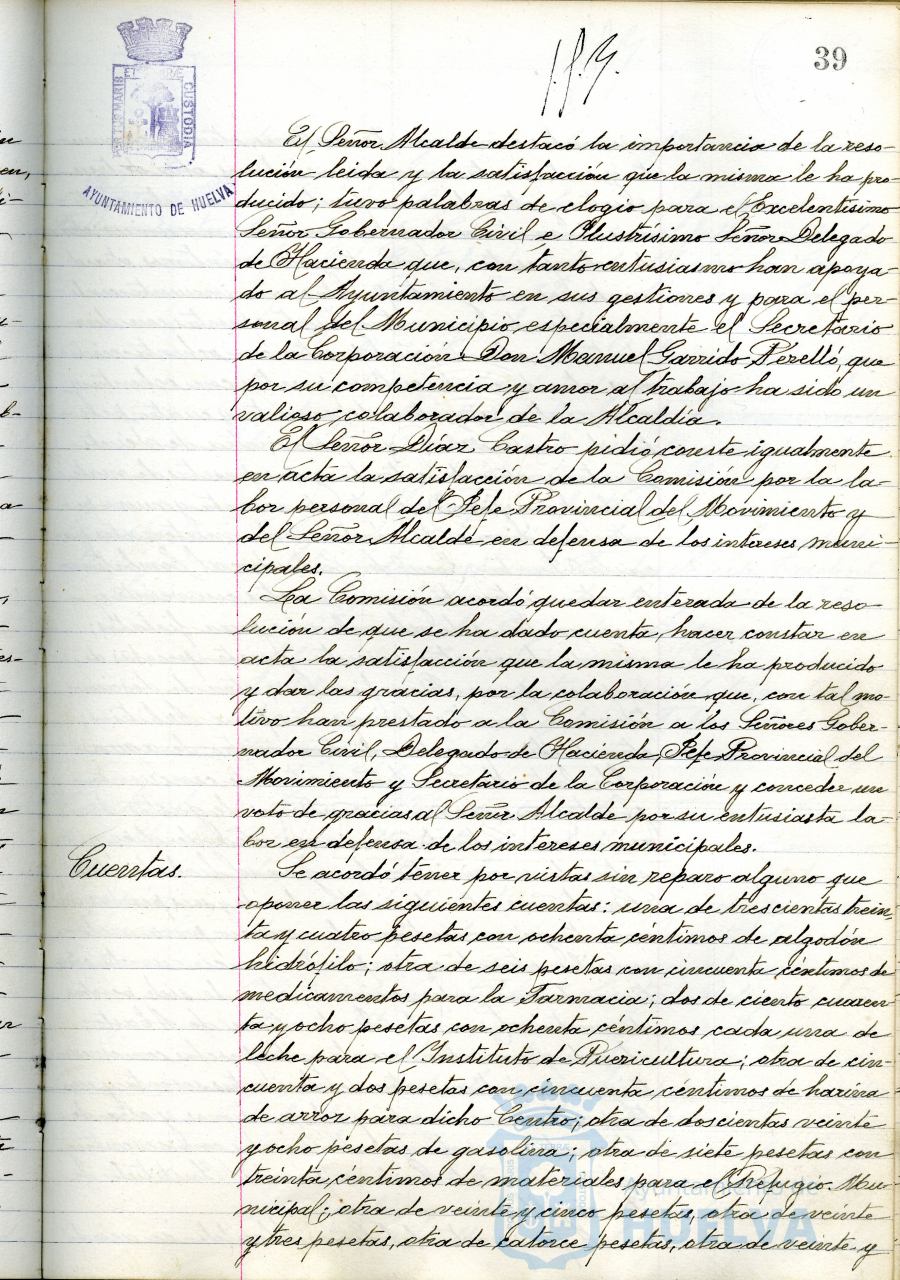 39
PORTUS MARIS ET TERRAE CUSTODIA
AYUNTAMIENTO DE HUELVA
El Señor Alcalde destacó la importancia de la reso-
lución leida y la satisfacción que la misma le ha pro-
ducido; tuvo palabras de elogio para el Excelentísimo
Señor Gobernador Civil e Ilustrísimo Señor Delegado
de Hacienda que, con tanto entusiasmo han apoya-
do al Ayuntamiento en sus gestiones y para el per-
sonal del Municipio, especialmente el Secretario
de la Corporación Don Manuel Garrido Perelló, que
por su competencia y amor al trabajo ha sido un
valioso colaborador de la Alcaldía.
El Señor Díaz Castro pidió conste igualmente
en acta la satisfacción de la Comisión por la la-
bor personal del Jefe Provincial del Movimiento y
del Señor Alcalde en defensa de los intereses muni-
cipales.
La Comisión acordó quedar enterada de la reso-
lución de que se ha dado cuenta, hacer constar en
acta la satisfacción que la misma le ha producido
y dar las gracias, por la colaboración que, con tal mo-
tivo han prestado a la Comisión a los Señores Gober-
nador Civil, Delegado de Hacienda, Jefe Provincial del
Movimiento y Secretario de la Corporación y conceder un
voto de gracias al Señor Alcalde por su entusiasta la-
bor en defensa de los intereses municipales.
Cuentas.
Se acordó tener por vistas sin reparo alguno que
oponer las siguientes cuentas: una de trescientas trein-
ta y cuatro pesetas con ochenta céntimos de algodón
hidrófilo; otra de seis pesetas con cincuenta céntimos de
medicamentos para la Farmacia; dos de ciento cuaren
ta y ocho pesetas con ochenta céntimos cada una de
leche para el Instituto de Puericultura; otra de cin-
cuenta y dos pesetas con cincuenta céntimos de harina
de arroz para dicho Centro; otra de doscientas veinte
y ocho pesetas de gasolina; otra de siete pesetas con
treinta céntimos de materiales para el Refugio Mu-
nicipal; otra de veinte y cinco pesetas, otra de veinte
y tres pesetas, otra de catorce pesetas, otra de veinte y
Ayuntamiento de
HUELVA